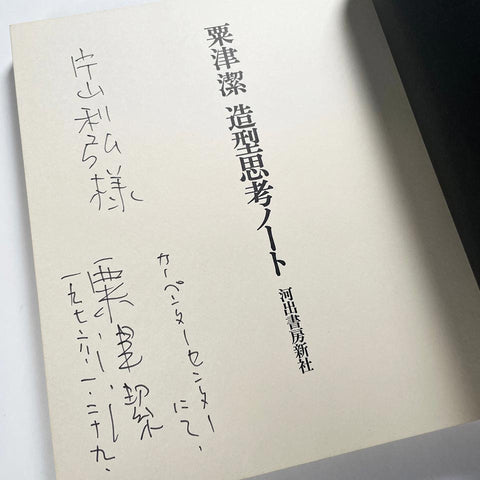 粟津潔 造型思考ノート
河出書房新社
片山利弘様
カーペンターセンター
にて、
粟津潔
一九七六・一・二十九、